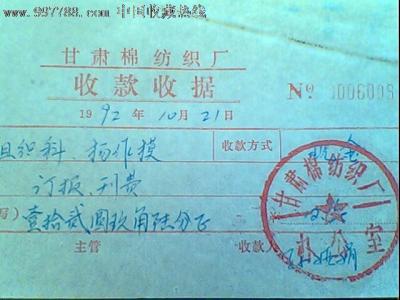 www.997788.com 中国收藏热线
甘肃棉纺织厂
收款收据
1992年10月21日 № 0006009
组织科、杨作模 收款方式 现金
订报、刊费
写) 壹拾贰圆玖角陆分正
主管 收款人
甘肃棉纺织厂
办公室